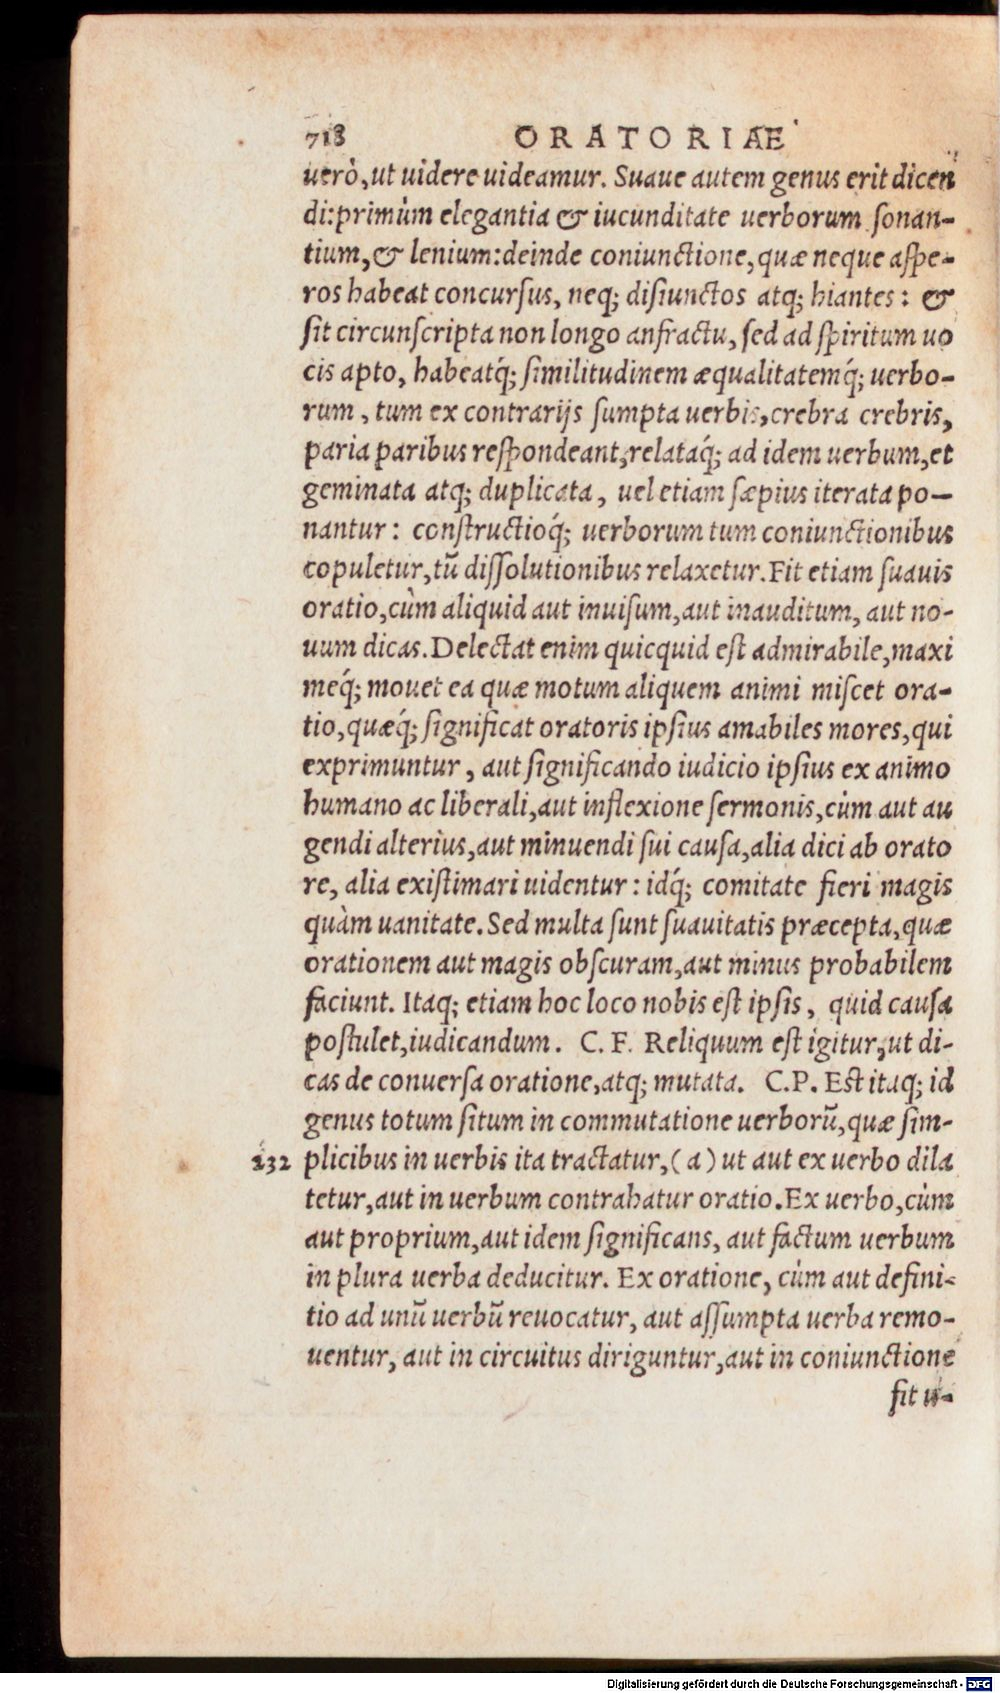 718 ORATORIAE
uerò, ut uidere uideamur. Suaue autem genus erit dicen
di: primùm elegantia & iucunditate uerborum sonan-
tium, & lenium: deinde coniunctione, quæ neque aspe-
ros habeat concursus, neq; disiunctos atq; hiantes: &
sit circunscripta non longo anfractu, sed ad spiritum uo
cis apto, habeatq́; similitudinem æqualitatemq́; uerbo-
rum, tum ex contrarijs sumpta uerbis, crebra crebris,
paria paribus respondeant, relataq́; ad idem uerbum, et
geminata atq; duplicata, uel etiam sæpius iterata po-
nantur: constructioq́; uerborum tum coniunctionibus
copuletur, tũ dissolutionibus relaxetur. Fit etiam suauis
oratio, cùm aliquid aut inuisum, aut inauditum, aut no-
uum dicas. Delectat enim quicquid est admirabile, maxi
meq́; mouet ea quæ motum aliquem animi miscet ora-
tio, quæq́; significat oratoris ipsius amabiles mores, qui
exprimuntur, aut significando iudicio ipsius ex animo
humano ac liberali, aut inflexione sermonis, cùm aut au
gendi alterius, aut minuendi sui causa, alia dici ab orato
re, alia existimari uidentur: idq́; comitate fieri magis
quàm uanitate. Sed multa sunt suauitatis præcepta, quæ
orationem aut magis obscuram, aut minus probabilem
faciunt. Itaq; etiam hoc loco nobis est ipsis, quid causa
postulet, iudicandum. C. F. Reliquum est igitur, ut di-
cas de conuersa oratione, atq; mutata. C. P. Est itaq; id
genus totum situm in commutatione uerborũ, quæ sim-
232 plicibus in uerbis ita tractatur, (a) ut aut ex uerbo dila
tetur, aut in uerbum contrahatur oratio. Ex uerbo, cùm
aut proprium, aut idem significans, aut factum uerbum
in plura uerba deducitur. Ex oratione, cùm aut defini-
tio ad unũ uerbũ reuocatur, aut assumpta uerba remo-
uentur, aut in circuitus diriguntur, aut in coniunctione
fit u-
Digitalisierung gefördert durch die Deutsche Forschungsgemeinschaft - DFG